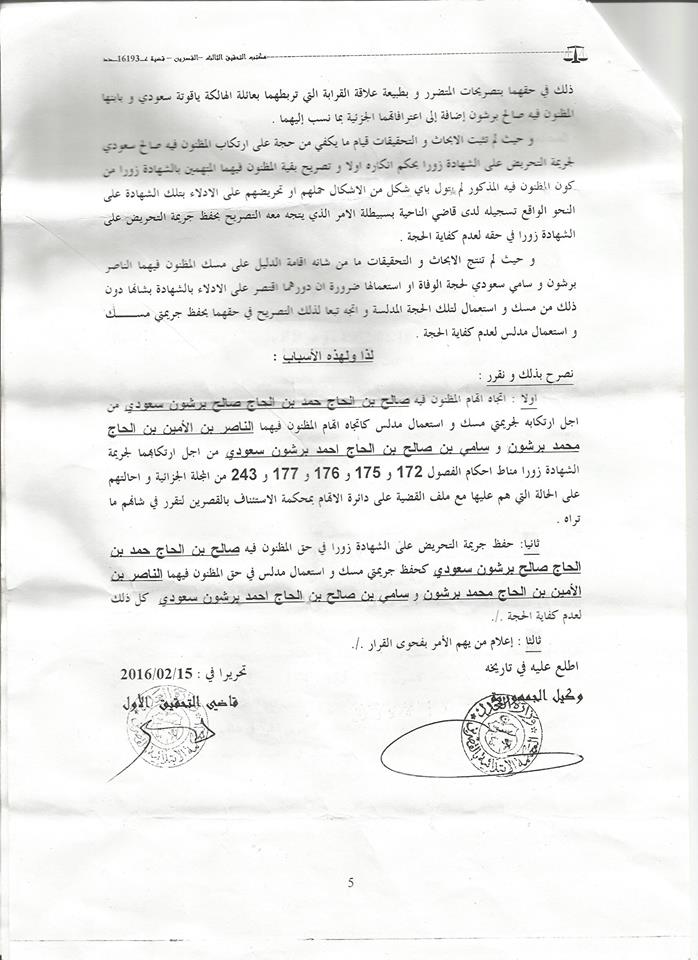 مكتب التحقيق الثالث –القصرين – قضية عـ16193ـدد
ذلك في حقهما بتصريحات المتضرر و بطبيعة علاقة القرابة التي تربطهما بعائلة الهالكة ياقوتة سعودي و بابنها
المظنون فيه صالح برشون إضافة إلى اعترافاتهما الجزئية بما نسب إليهما .
و حيث لم تثبت الابحاث و التحقيقات قيام ما يكفي من حجة على ارتكاب المظنون فيه صالح سعودي
لجريمة التحريض على الشهادة زورا بحكم انكاره اولا و تصريح بقية المظنون فيهما المتهمين بالشهادة زورا من
كون المظنون فيه المذكور لم يتول باي شكل من الاشكال حملهم او تحريضهم على الادلاء بتلك الشهادة على
النحو الواقع تسجيله لدى قاضي الناحية بسبيطلة الامر الذي يتجه معه التصريح بحفظ جريمة التحريض على
الشهادة زورا في حقه لعدم كفاية الحجة .
و حيث لم تنتج الابحاث و التحقيقات ما من شانه اقامة الدليل على مسك المظنون فيهما الناصر
برشون و سامي سعودي لحجة الوفاة او استعمالها ضرورة ان دورهما اقتصر على الادلاء بالشهادة بشانها دون
ذلك من مسك و استعمال لتلك الحجة المدلسة و اتجه تبعا لذلك التصريح في حقهما بحفظ جريمتي مســـك
و استعمال مدلس لعدم كفاية الحجة .
لذا ولهذه الأسباب :
نصرح بذلك و نقرر :
اولا : اتجاه اتهام المظنون فيه صالح بن الحاج حمد بن الحاج صالح برشون سعودي من
اجل ارتكابه لجريمتي مسك و استعمال مدلس كاتجاه اتهام المظنون فيهما الناصر بن الأمين بن الحاج
محمد برشون و سامي بن صالح بن الحاج احمد برشون سعودي من اجل ارتكابهما لجريمة
الشهادة زورا مناط احكام الفصول 172 و 175 و 176 و 177 و 243 من المجلة الجزائية و احالتهم
على الحالة التي هم عليها مع ملف القضية على دائرة الاتهام بمحكمة الاستئناف بالقصرين لتقرر في شانهم ما
تراه .
ثانيا: حفظ جريمة التحريض على الشهادة زورا في حق المظنون فيه صالح بن الحاج حمد بن
الحاج صالح برشون سعودي كحفظ جريمتي مسك و استعمال مدلس في حق المظنون فيهما الناصر بن
الأمين بن الحاج محمد برشون و سامي بن صالح بن الحاج احمد برشون سعودي كل ذلك
لعدم كفاية الحجة ./.
ثالثا : إعلام من يهم الأمر بفحوى القرار ./.
اطلع عليه في تاريخه
تحريرا في : 2016/02/15
وكيل الجمهورية
قاضي التحقيق الأول
وزارة العدل
5